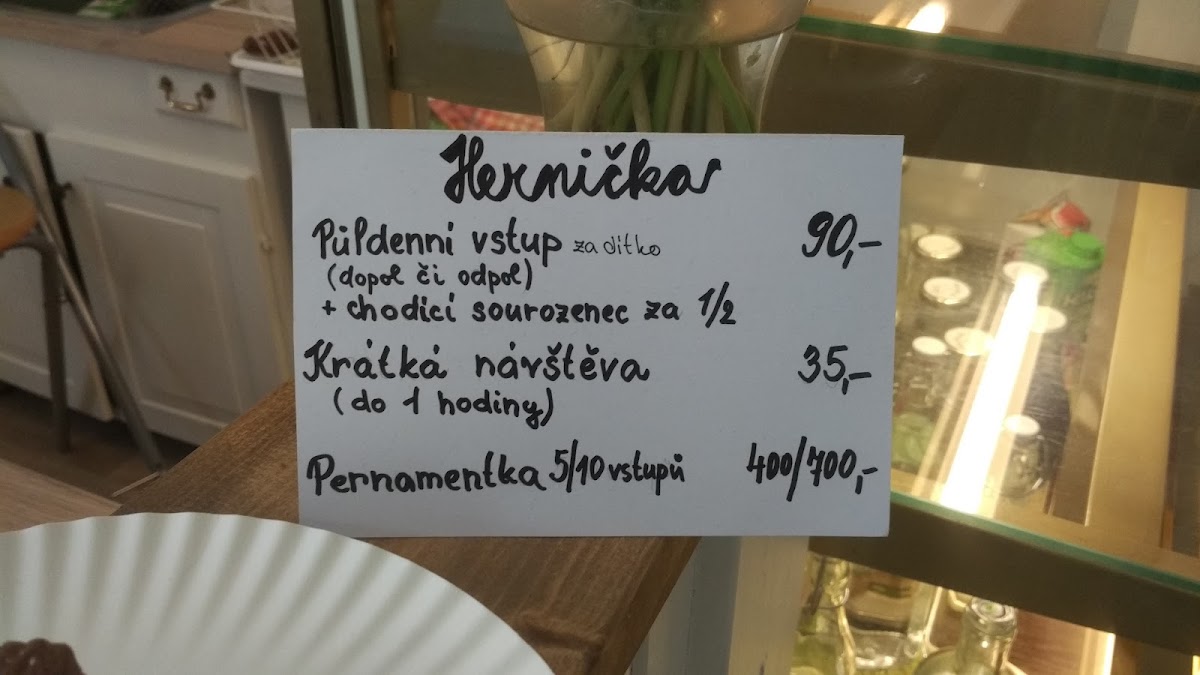 Hernička
Půldenní vstup za dítko 90,-
(dopol či odpol)
+ chodící sourozenec za 1/2
Krátká návštěva 35,-
(do 1 hodiny)
Pernamentka 5/10 vstupů 400/700,-